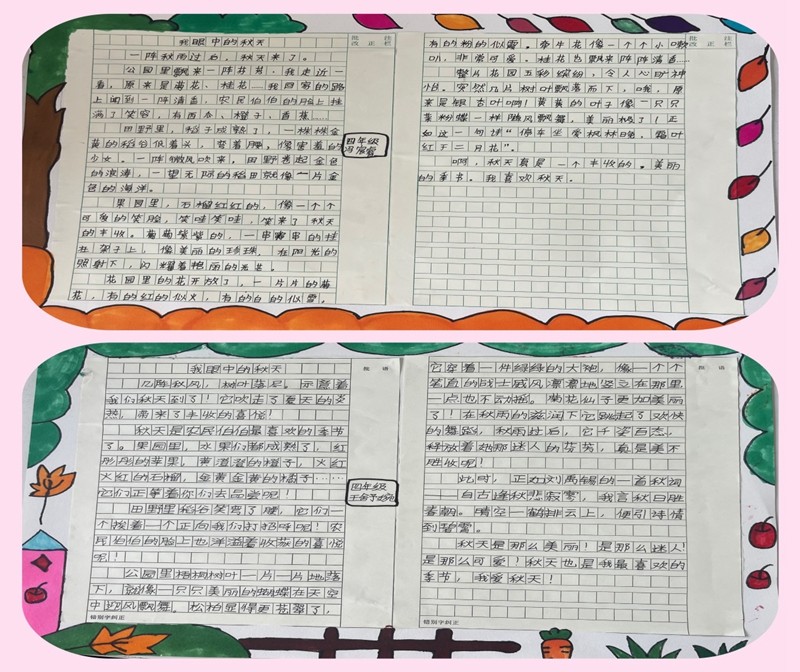 我眼中的秋天
批改
订正栏
一阵秋雨过后，秋天来了。
公园里飘来一阵芬芳，我走近一
看，原来是菊花、桂花…我回家的路
上闻到一阵清香，农民伯伯的脸上挂
满了笑容，有西瓜、橙子、香蕉……
田野里，稻子成熟了，一棵棵金
黄的稻谷低着头，弯着腰，像害羞的
少女。一阵微风吹来，田野卷起金色
的波涛，一望无际的稻田就像一片金
色的海洋。
果园里，石榴红红的，像一个个
可爱的笑脸，笑哇笑哇，笑来了秋天
的丰收。葡萄紫紫的，一串串串的挂
在架子上，像美丽的珍珠，在阳光的
照射下，闪耀着艳丽的光芒。
花园里的花开放了，一片片的菊
花，有的红的似火，有的白的似雪。
四年级
有的粉的似霞。牵牛花像一个个小喇
叭，非常可爱。桂花也飘来阵阵清香…
整片花园五彩缤纷，令人心旷神
怡。突然几片树叶飘落而下，咦，原
来是银杏叶啊！黄黄的叶子像一只只
黄粉蝶一样随风飘舞，美丽极了！正
如这一句诗“停车坐爱枫林晚，霜叶
红于二月花”。
啊，秋天真是一个丰收的、美丽
的季节。我喜欢秋天。
批改
订正栏
我眼中的秋天
批语
几阵秋风，树叶落尽。示意着
我们秋天到了！它吹走了夏天的炎
热，带来了丰收的喜悦！
秋天是农民伯伯最喜欢的季节
了。果园里，水果们都成熟了，红
彤彤的苹果，黄澄澄的橙子，火红
火红的石榴，金黄金黄的橘子……
它们正等着你们去品尝呢！
田野里稻谷笑弯了腰，它们一
个挨着一个正向我们打招呼呢！农
民伯伯的脸上也洋溢着收获的喜悦
呢！
公园里梧桐树叶一片一片地落
下，就像一只只美丽的蝴蝶在天空
中迎风飘舞。松柏显得更苍翠了，
错别字纠正
四年级
它穿着一件绿绿的大袍，像一个个
笔直的战士威风凛凛地竖立在那里
一点也不动摇。菊花仙子更加美丽
了！在秋雨的滋润下它跳起了欢快
的舞蹈，秋雨过后，它千姿百态，
释放着她那迷人的芬芳，真是美不
胜收呢！
此时，正如刘禹锡的一首秋词
——自古逢秋悲寂寥，我言秋日胜
春朝。晴空一鹤排云上，便引诗情
到碧霄。
秋天是那么美丽！是那么迷人！
是那么可爱！秋天也是我最喜欢的
季节，我爱秋天！
批语
错别字纠正